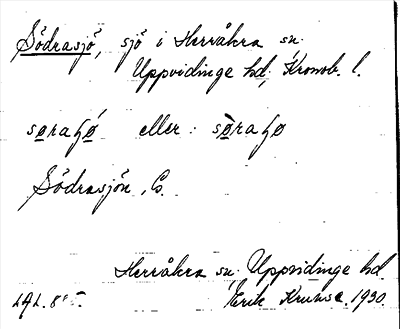 Södrasjö, sjö i Herråkra sn.
Uppvidinge hd, Kronob. l.
søraɧø eller: søraɧø
Södrasjön,
Herråkra sn. Uppvidinge hd.
Erik Kruuse. 1930.